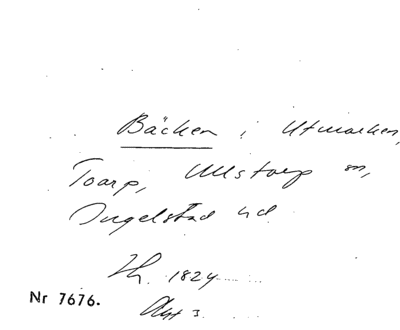 Bäcken i Utmarken,
Toarp, Ullstorp sn,
Ingelstad hd.
Lh. 1824
Akt 3.
Nr 7676.